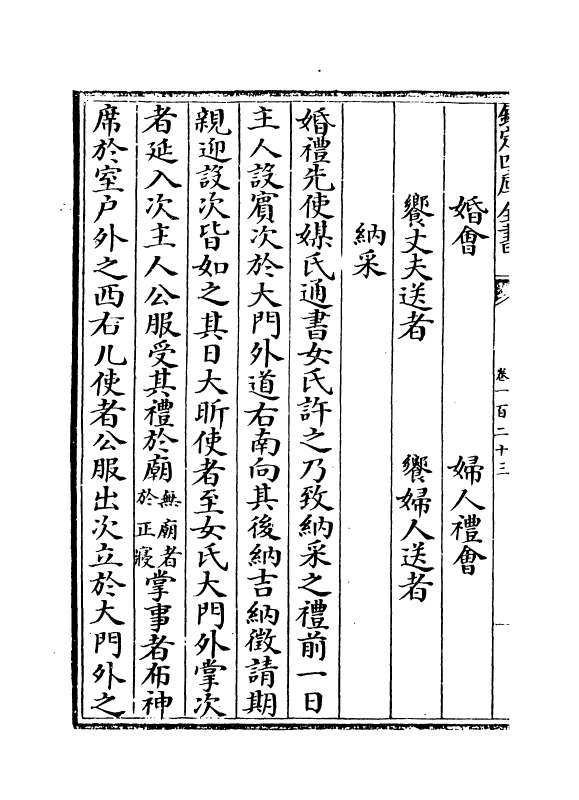 欽定四庫全書
卷一百二十三
婚會
婦人禮會
饗丈夫送者
饗婦人送者
納采
婚禮先使媒氏通書女氏許之乃致納采之禮前一日
主人設賓次於大門外道右南向其後納吉納徵請期
親迎設次皆如之其日大昕使者至女氏大門外掌次
者延入次主人公服受其禮於廟無廟者於正寢掌事者布神
席於室户外之西右几使者公服出次立於大門外之